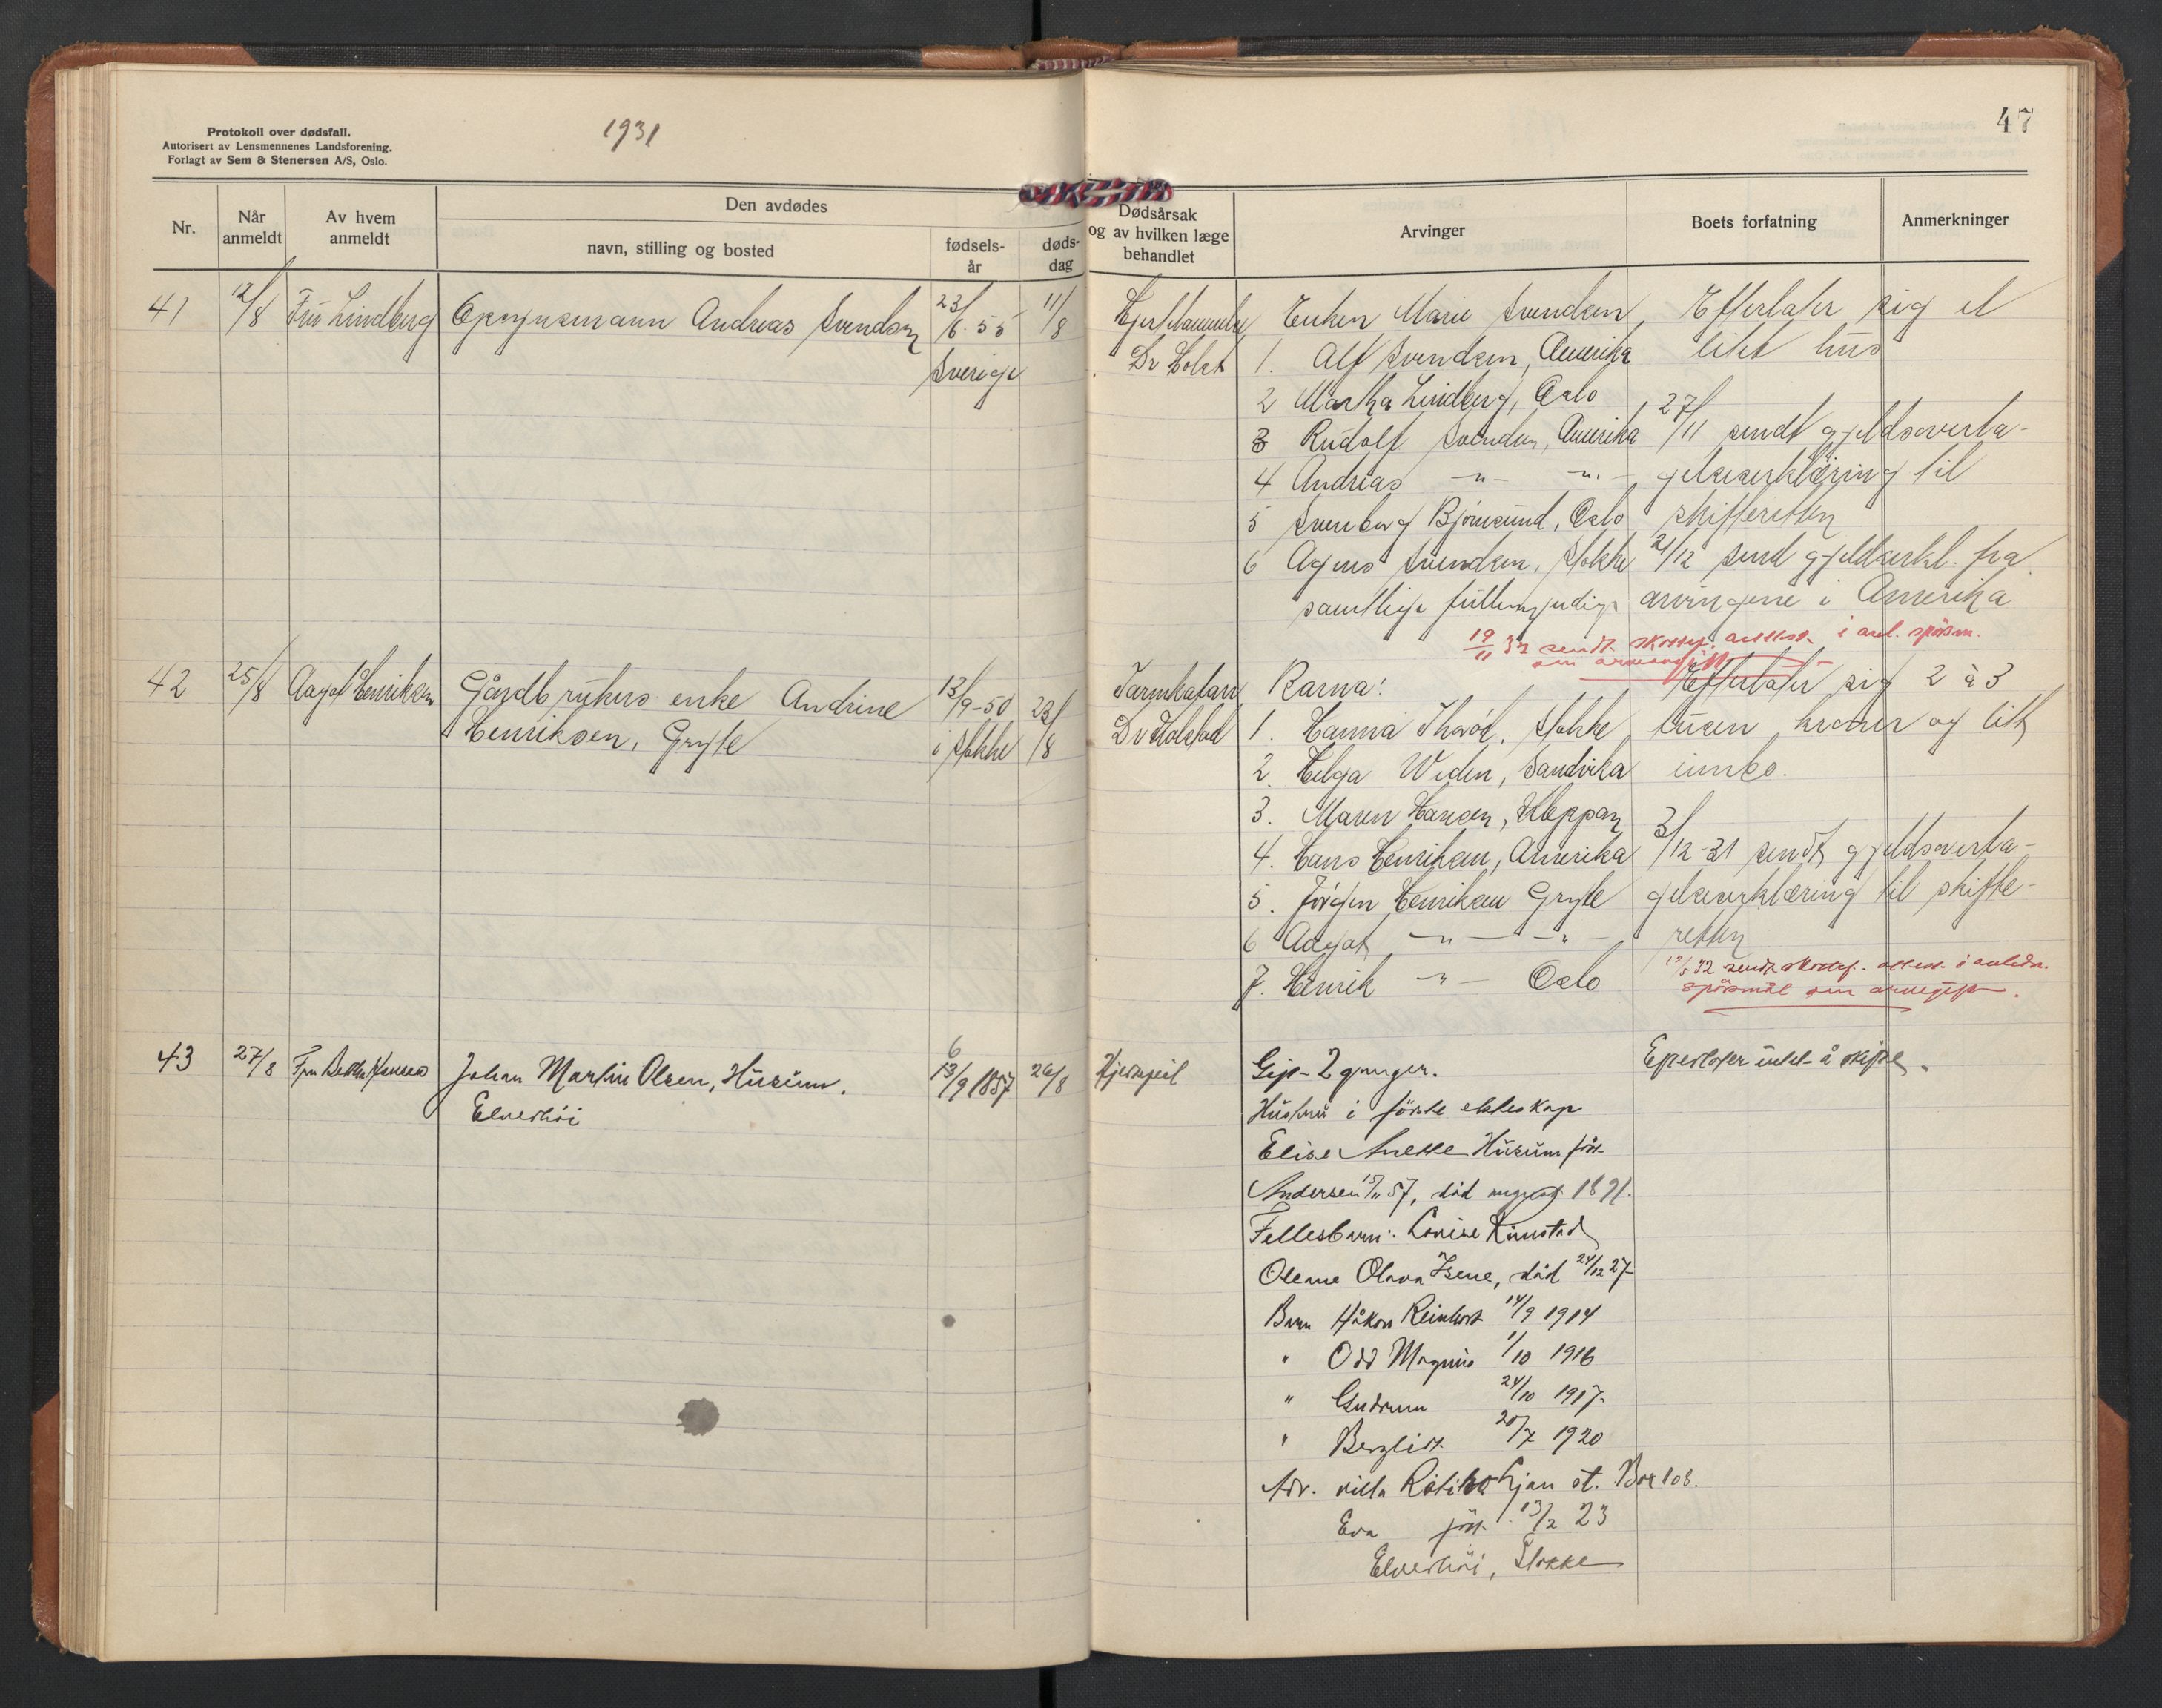 Protokoll over dødsfall.
Autorisert av Lensmennenes Landsforening.
Forlagt av Sem & Stenersen A/S, Oslo.
1931
47
Nr.
Når anmeldt
Av hvem anmeldt
Den avdødes
navn, stilling og bosted
fødsels-år
døds-dag
Dødsårsak og av hvilken læge behandlet
Arvinger
Boets forfatning
Anmerkninger
41 12/8 Fru Lindberg Opsynsmann Andreas Svendsen 23/6-55 11/8
Sverige
Dr Holst
Enken Marie Svendsen,
1. Alf Svendsen, Amerika
2 Martha Lindberg, Oslo
3 Rudolf Svendsen, Amerika
4 Andreas -"- -"-
5 Svenborg Bjørnsund, Oslo
6 Agnes Svendsen, Stokke
samtlige fullmyndige
Efterlater sig et
litet hus
27/11 sendt gjeldsoverta-
gelseserklæring til
skifteretten
21/12 send gjeldserkl. fra
arvingene i Amerika
19/11 32 sendt skattef. attest. i anl. spörsm.
om arveavgift
42 25/8 Aagot Henriksen Gårdbrukers enke Andrine 13/9-50 23/8
Henriksen, Gryte i Stokke
Tarmkatarr
Dr Holstad
Barna:
1. Hanna Thorød, Stokke
2. Helga Widen, Sandvika
3. Maren Hansen, Kleppan
4. Hans Henriksen, Amerika
5. Jörgen Henriksen Gryte
6 Aagot -"- -"-
7. Henrik -"- Oslo
Efterlater sig 2 à 3
tusen kroner og litt
innbo.
3/12-31 sendt gjeldsoverta-
gelseserklæring til skifte-
retten
32 sendt skattef. attest i anledn.
spörsmål om arveavgift.
43 27/8 Fru Hansen Johan Martin Olsen, Husum. 13/9 1857 26/8
6
Elverhöi
Hjertefeil
Gift 2 ganger.
Hustru i förste ekteskap
Elise Anette Husum född
Andersen 15/11 57, död august 1891.
Fellesbarn: Lovise Rimstad
Olava Isene, död 24/12 27
Barn Håkon Reinhart 14/9 1914
" Odd Magnus 1/10 1916
" Gudrun 24/10 1917
" Bergliot 20/7 1920
Adr. villa Ljan st. Box 108.
Eva född 13/2 23
Elverhöi, Stokke
Efterlater intet å skifte.